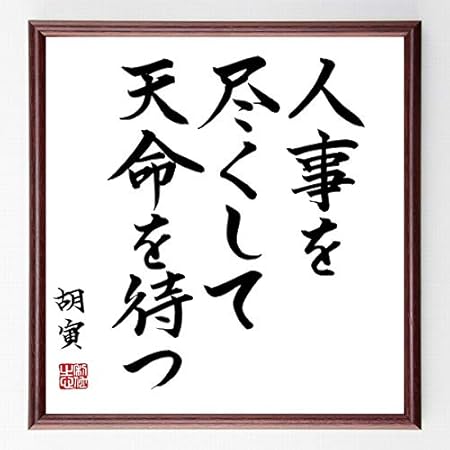 人事を
尽くして
天命を待つ
胡寅